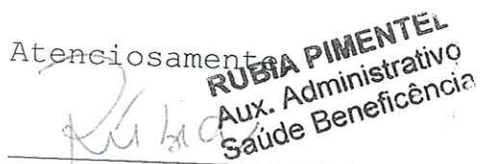 Atenciosamente
RUBIA PIMENTEL
Aux. Administrativo
Saúde Beneficência
Rúbia